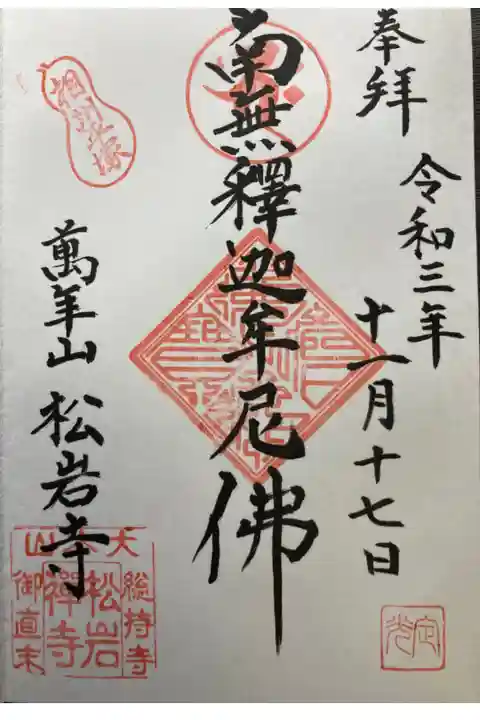 奉拝
令和三年
十一月十七日
南無釋迦牟尼佛
萬年山 松岩寺
大本山
総持寺
御直末
松岩禅寺